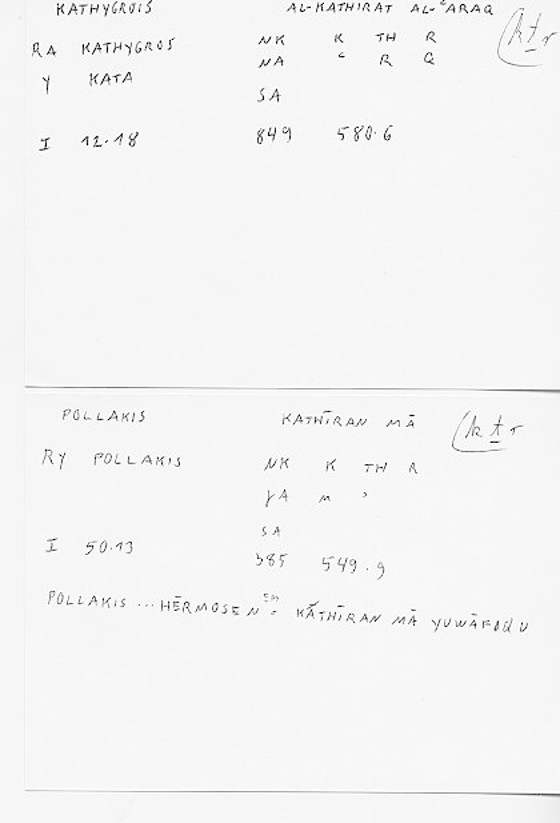 KATHYGROIS AL-KATHIRAT AL-ʿARAQ (kṯr
RA KATHYGROS NK K TH R
Y KATA NA ʿ R Q
SA
I 12.18 849 580.6
POLLAKIS KATHĪRAN MĀ (kṯr
RY POLLAKIS NK K TH R
YA M ʾ
SA
I 50.13 385 549.9
POLLAKIS ... HĒRMOSEN = KATHĪRAN MĀ YUWĀFOQU